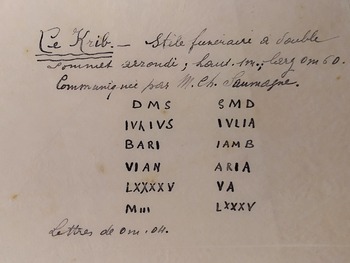 Le Krib. — Stèle funéraire à double
sommet arrondi ; haut. 1m. ; larg 0m60.
Communiquée par M. Ch. Saumagne.
DMS SMD
IVLIVS IVLIA
BARI IAMB
VIAN ARIA
LXXXXV VA
MIII LXXXV
Lettres de 0m.04.